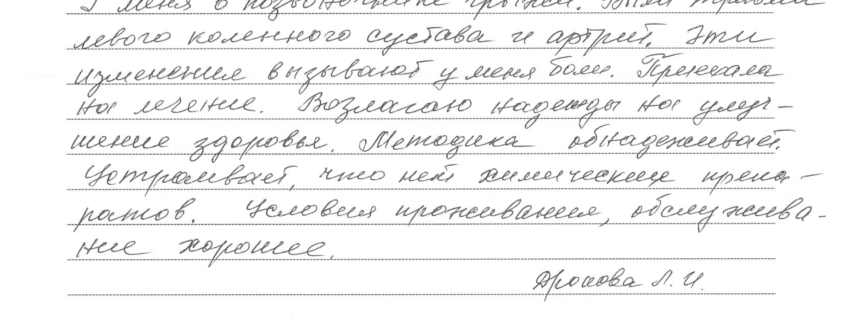 У меня в позвоночнике грыжи. Были травмы
левого коленного сустава и артрит. Эти
изменения вызывают у меня боли. Приехала
на лечение. Возлагаю надежды на улуч-
шение здоровья. Методика обнадеживает.
Устраивает, что нет химических препа-
ратов. Условия проживания, обслужива-
ние хорошие.
Дронова Л.И.